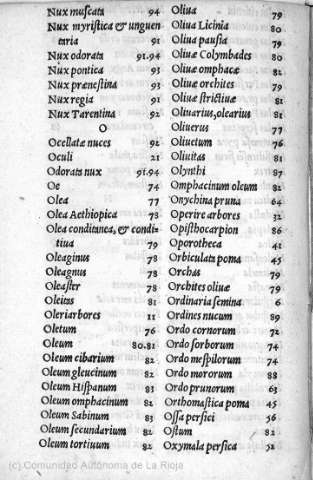 Nux muscata 94
Nux myristica & unguen
taria 91
Nux odorata 91.94
Nux pontica 93
Nux prænestina 93
Nux regia 91
Nux Tarentina 92
O
Ocellatæ nuces 92
Oculi 21
Odorata nux 91.94
Oe 74
Olea 77
Olea Aethiopica 78
Olea conditanea, & condi-
tiua 79
Oleaginus 78
Oleagnus 78
Oleaster 78
Oleitas 81
Oleriarbores 11
Oletum 76
Oleum 80.81
Oleum cibarium 82
Oleum gleucinum 82
Oleum Hispanum 83
Oleum omphacinum 82
Oleum Sabinum 83
Oleum secundarium 82
Oleum tortiuum 82
Oliua 79
Oliua Licinia 80
Oliua pausia 79
Oliuæ Colymbades 80
Oliuæ omphacæ 82
Oliuæ orchites 79
Oliuæ strictiuæ 81
Oliuarius, olearius 81
Oliuerus 77
Oliuetum 76
Oliuitas 81
Olynthi 87
Omphacinum oleum 82
Onychina pruna 64
Operire arbores 32
Opisthocarpion 86
Oporotheca 41
Orbiculata poma 45
Orchas 79
Orchites oliuæ 79
Ordinaria semina 6
Ordines nucum 89
Ordo cornorum 72
Ordo sorborum 74
Ordo mespilorum 74
Ordo mororum 88
Ordo prunorum 63
Orthomastica poma 45
Ossa persici 56
Ostum 82
Oxymala persica 52
(c) Comunidad Autónoma de La Rioja